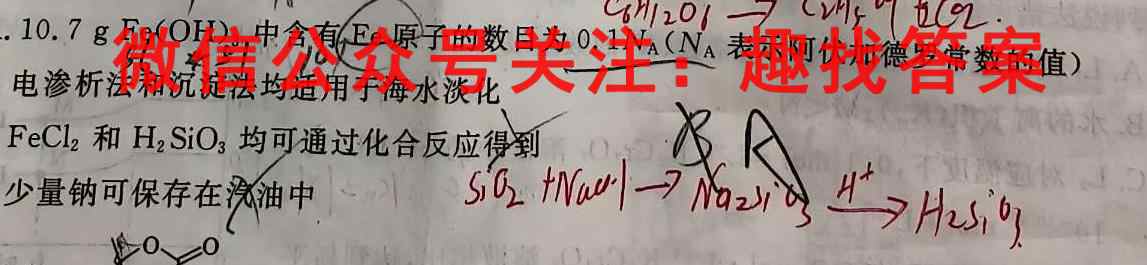 C₆H₁₂O₆ → C₂H₅
. 10.7 g Fe(OH)₃ 中含有 Fe 原子的数目为 0.1N_A(N_A 表示阿伏加德罗常数的值)
微信公众号关注：趣找答案
电渗析法和沉淀法均适用于海水淡化
FeCl₂ 和 H₂SiO₃ 均可通过化合反应得到
B A
少量钠可保存在汽油中
SiO₂ + → Na₂SiO₃ H⁺ → H₂SiO₃
O O